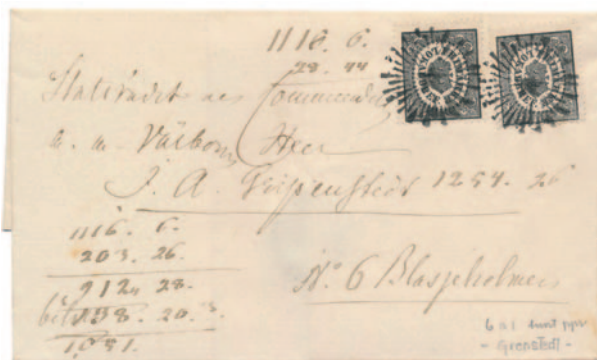 1116. 6.
28. 44
Statsrådet och Commendeur
m. m. Välborne Herr
J. A. Gripenstedt 1254. 26
1116. 6.
203. 26.
912. 28.
138. 20.
1051.
No 6 Blasieholmen
6 a 1 tunt ppr
- Grenstedt -